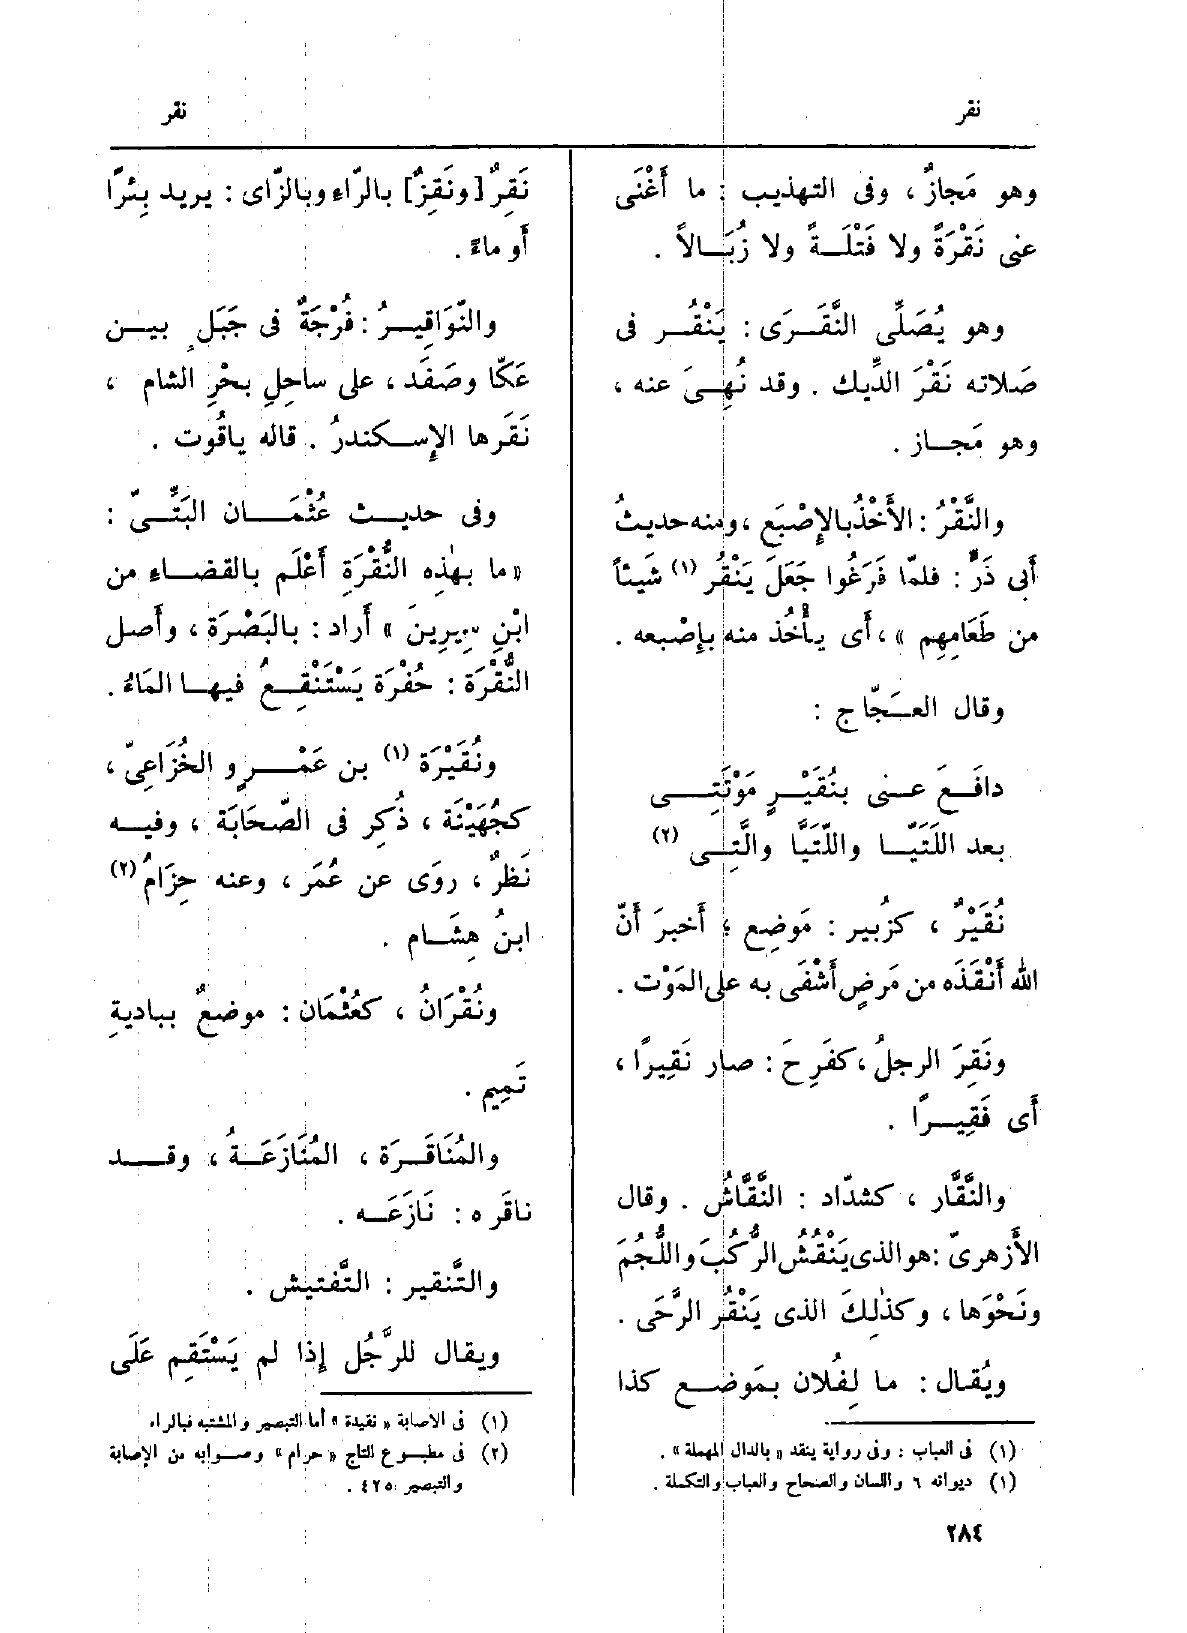 نقر
نقر
وهو مَجازٌ ، وفى التهذيب : ما أَغْنَى
عنى نَقْرَةً ولا فَتْلَـــةً ولا زُبَـــالاً .
وهو يُصَلِّى النَّقَــرَى : يَنْقُــر فى
صَلاته نَقْرَ الدِّيك . وقد نُهِـىَ عنه ،
وهو مَجــاز .
والنَّقْرُ : الأَخْذُ بالإِصْبَع ، ومنه حديثُ
أَبى ذَرٍّ : فلمّا فَرَغُوا جَعَلَ يَنْقُر (١) شَيئاً
من طَعَامِهِم » ، أَى يــأْخُذ منه بإِصْبعه .
وقال العــجّاج :
دافَــعَ عــنى بنُقَيْــرٍ مَوْتَتِــى
بعد اللَتَيّــا واللَّتَيَّا والَّتِــى (٢)
نُقَيْرٌ ، كزُبير : مَوضِع ؛ أَخبرَ أَنّ
الله أَنْقَذَه من مَرضٍ أَشْفَى به على المَوْت .
ونَقِرَ الرجلُ ، كفَرِحَ : صار نَقِيرًا ،
أَى فَقِيــرًا .
والنَّقَّار ، كشدّاد : النَّقَّاش . وقال
الأَزهرىّ : هو الذى يَنْقُشُ الرُّكُبَ واللُّجُمَ
ونَحْوَها ، وكذٰلِكَ الذى يَنْقُر الرَّحَى .
ويُقال : ما لِفُلان بمَوضــع كذا
(١) فى العباب : وفى رواية ينقد « بالدال المهملة » .
(١) ديوانه ٦ واللسان والصحاح والعباب والتكملة .
٢٨٤
نَقِرٌ [ ونَقِزٌ ] بالرّاء وبالزّاى : يريد بِئرًا
أَو ماءً .
والنّوَاقِيــرُ : فُرْجَةٌ فى جَبَلٍ بيــن
عَكّا وصَفَد ، على ساحِلِ بحْرِ الشام ،
نَقَرها الإِســكندرُ . قاله ياقُوت .
وفى حديــث عُثْمَــان البَتِّــىّ :
« ما بهٰذِه النُّقْرَةِ أَعْلَم بالقضــاءِ من
ابْنِ سِيرِينَ » أَراد : بالبَصْرَة ، وأَصل
النُّقْرَة : حُفْرَة يَسْتَنْقِــعُ فيهــا المَاءُ .
ونُقَيْرَة (١) بن عَمْــرٍو الخُزَاعِىّ ،
كجُهَيْنَة ، ذُكِر فى الصّحَابَة ، وفيــه
نَظرٌ ، روَى عن عُمَر ، وعنه حِزَامُ (٢)
ابنُ هِشَــام .
ونُقْرَانُ ، كعُثْمَان : موضعٌ بباديةِ
تَمِيم .
والمُنَاقَــرَة ، المُنَازَعَــةُ ، وقــد
ناقَره : نَازَعَــه .
والتَّنقير : التَّفتيش .
ويقال للرَّجُل إِذا لم يَسْتَقِم عَلَى
(١) فى الاصابة « نقيدة » أما التبصير والمشتبه فبالراء
(٢) فى مطبــوع التاج « حرام » وصــوابه من الإصابة
والتبصير ٤٢٥ .